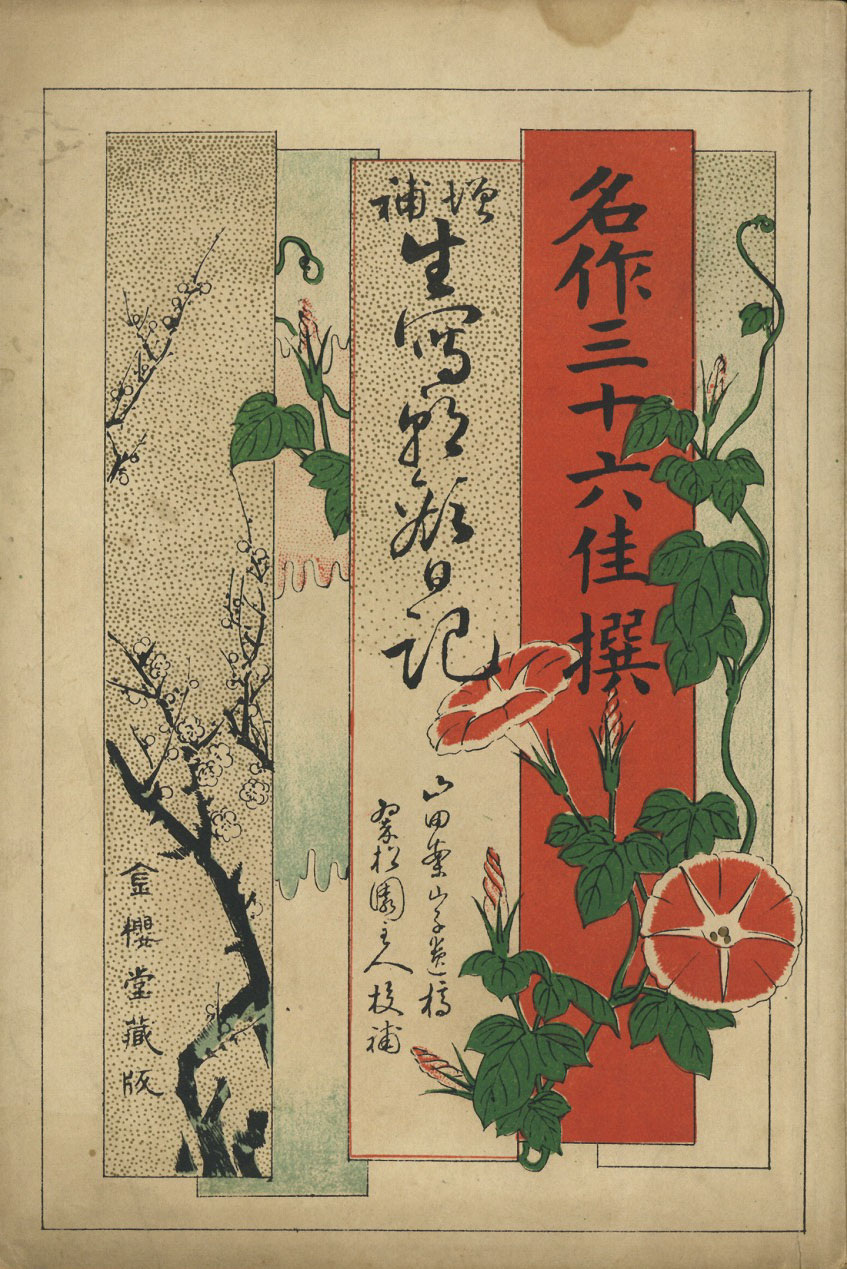 名作三十六佳撰
増補
生寫朝顔日記
山田案山子遺稿
翠松園主人校補
金櫻堂藏版